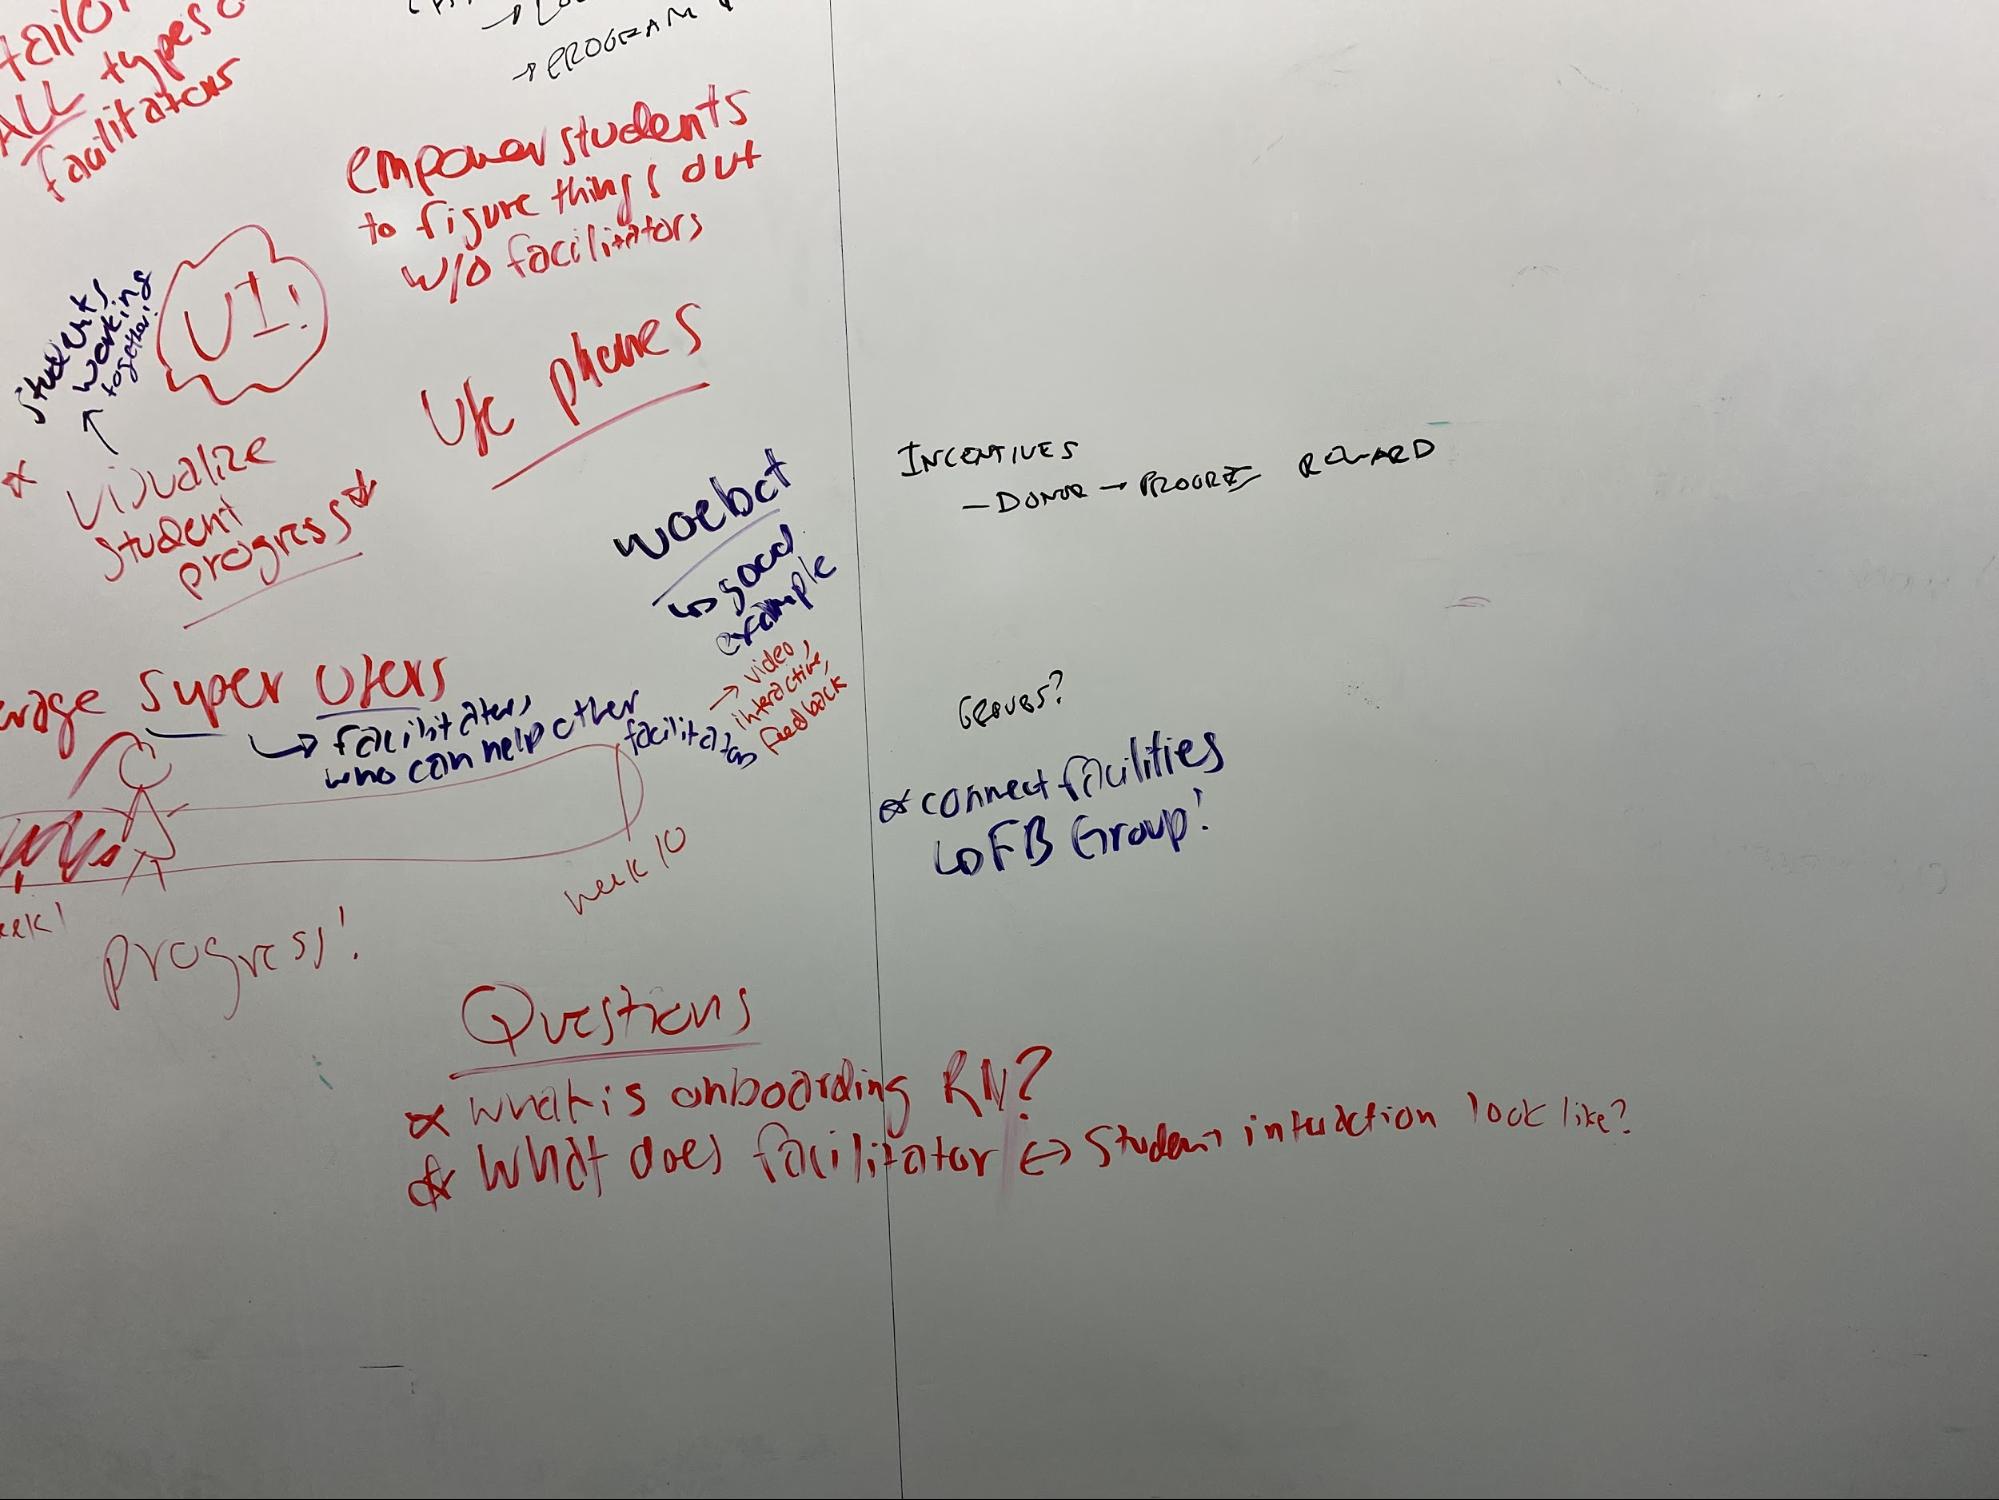 ALL types
facilitators
→ PROGRAM
empower students
to figure things out
w/o facilitators
UI!
students
working
together!
Use phones
* visualize
student
progress *
woebot
↳ good
example
→ video,
interactive,
feedback
super users
↳ facilitators,
who can help other
facilitators
week 10
progress!
INCENTIVES
- DONOR → PROGRESS REWARD
GROUPS?
* connect facilities
↳ FB Group!
Questions
* what is onboarding RN?
* What does facilitator ↔ student interaction look like?